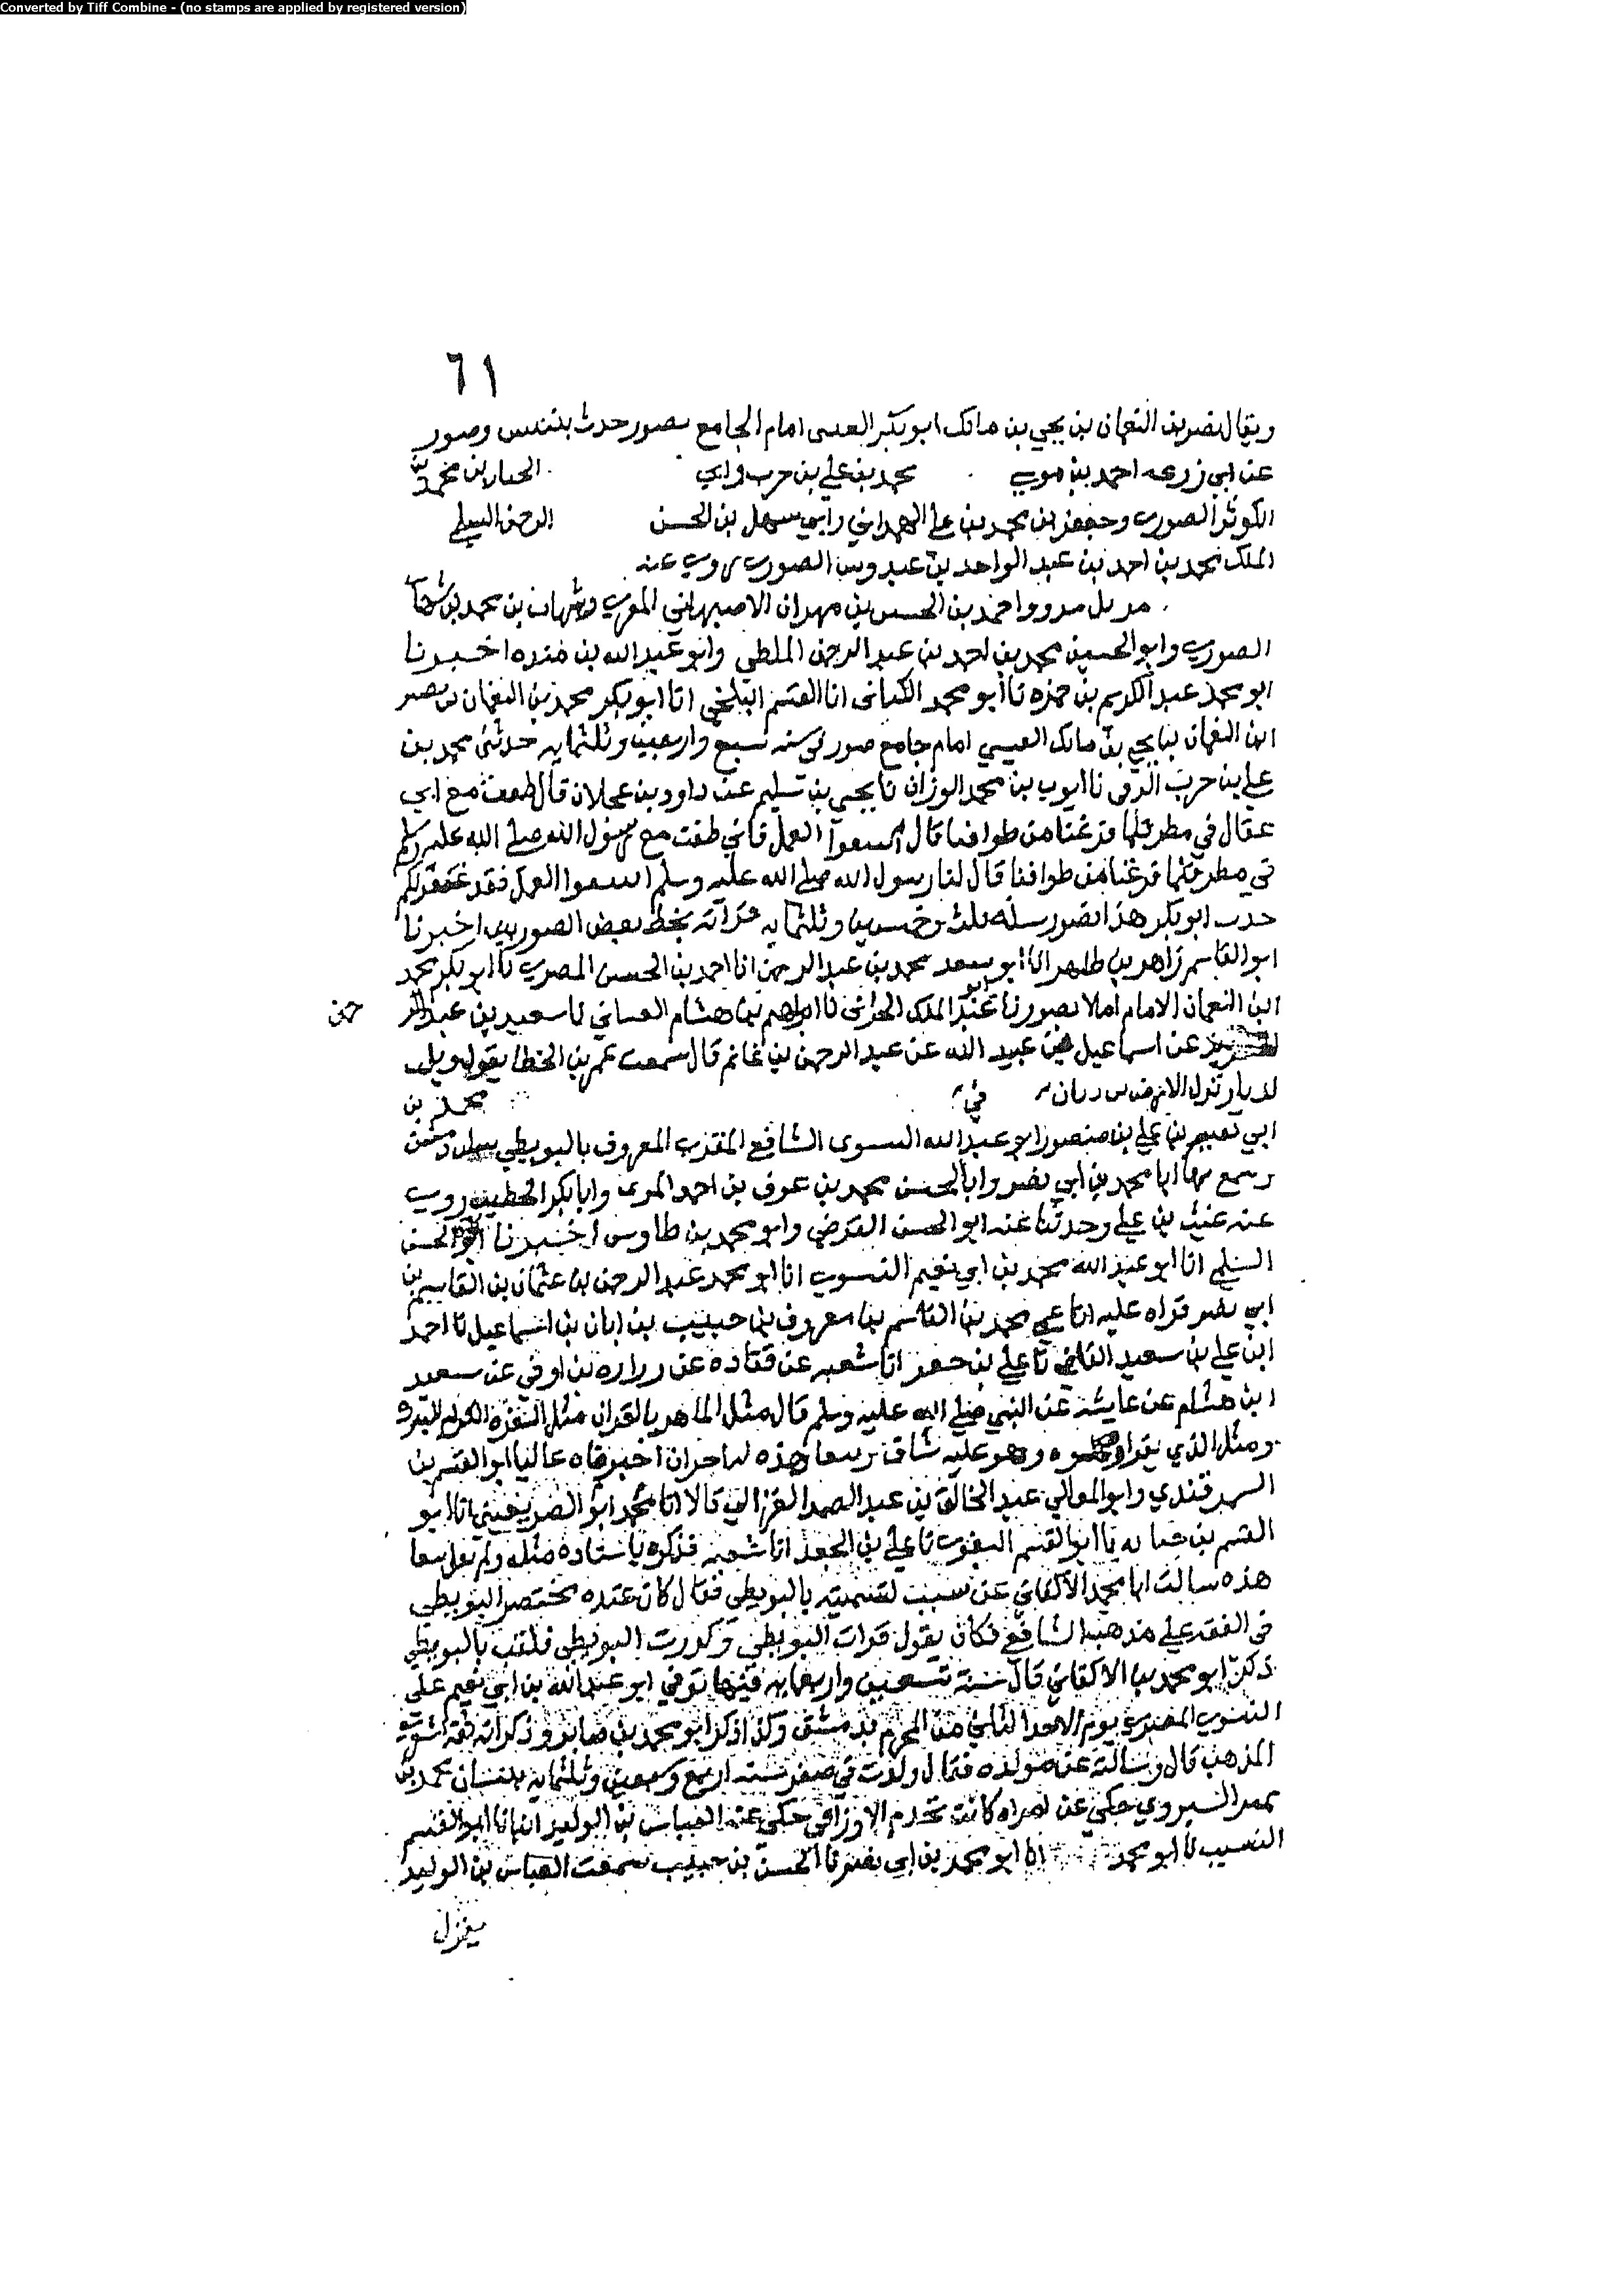 Converted by Tiff Combine - (no stamps are applied by registered version)
٦١
ويقال نصر بن النعمان بن يحيى بن مالك ابو بكر العبسى امام الجامع بصور حدث بتنيس وصور
عن ابي زرعه احمد بن موسى محمد بن علي بن حرب وابي الجبار بن محمد بن
الكوثر الصوري وجعفر بن محمد بن علي الهمداني وابي سهل بن الحسن الرحمن السلمي
الملك محمد بن احمد بن عبد الواحد بن عبدوس الصوري روى عنه
واحمد بن الحسين بن مهران الاصبهاني المقري وشهاب بن محمد بن شهاب
الصوري وابو الحسين محمد بن احمد بن عبد الرحمن الملطي وابو عبد الله بن منده اخبرنا
ابو محمد عبد الكريم بن حمزه نا أبو محمد الكتانى انا القسم البلخي انا ابو بكر محمد بن النعمان بن نصر
ابن النعمان بن يحيى بن مالك العبسي امام جامع صور في سنه سبع واربعين وثلثمايه حدثنى محمد بن
علي بن حرب الرقى نا ايوب بن محمد الوزان نا يحيى بن سليم عن داود بن عجلان قال طفت مع ابي
عقال في مطر فلما فرغنا من طوافنا قال العمل فاني طفت مع رسول الله صلى الله عليه وسلم
في مطر فلما فرغنا من طوافنا قال لنا رسول الله صلى الله عليه وسلم العمل فقد غفر لكم
حدث ابو بكر هذا بصور سنه ثلث وخمسين وثلثمايه قرأته بخط بعض الصوريين اخبرنا
ابو القاسم زاهر بن طاهر انا ابو سعد محمد بن عبد الرحمن انا احمد بن الحسين المصري نا ابو بكر محمد
ابن النعمان الامام املا بصور نا ابو عبد الملك الحراني نا ابراهيم بن هشام الغساني نا سعيد بن عبد الر حمن
عن اسماعيل بن عبيد الله عن عبد الرحمن بن غانم قال سمعت عمر بن الخطاب يقول ويل
لديان الارض من ديان في محمد بن
ابي نعيم بن علي بن منصور ابو عبد الله النسوى الشافعي المقري المعروف بالبويطي سكن دمشق
وسمع بها ابا محمد بن ابي نصر وابا الحسن محمد بن عوف بن احمد المزنى وابا بكر الخطيب روى
عنه غيث بن علي وحدثنا عنه ابو الحسن الفرضي وابو محمد بن طاوس اخبرنا ابو الحسن
السلمي انا ابو عبد الله محمد بن ابي نعيم النسوي انا ابو محمد عبد الرحمن بن عثمان بن القاسم بن
ابي نصر قراه عليه انا عمي محمد بن القاسم بن معروف بن حبيب بن ابان بن اسماعيل نا احمد
ابن علي بن سعيد القاضي نا علي بن جعد انا شعبه عن قتاده عن زراره بن اوفى عن سعيد
ابن هشام عن عايشه عن النبي صلى الله عليه وسلم قال مثل الماهر بالقران مثل السفره الكرام البرره
ومثل الذي يقراوه وهو عليه شاق هذه له اجران اخبرناه عاليا ابو القسم بن
السمرقندي وابو المعالي عبد الخالق بن عبد الصمد قالا انا محمد ابو الصريفيني انا ابو
القسم بن حبابه نا ابو القسم البغوي نا علي بن الجعد انا شعبه فذكره باسناده مثله ولم يقل
هذه سالت ابا محمد الاكفاني عن سبب تسميته بالبويطي فقال كان عنده مختصر البويطي
في الفقه على مذهب الشافعي فكان يقول قرات البويطي وكررت البويطي فلقب بالبويطي
ذكر ابو محمد بن الاكفاني قال سنة تسعين واربعمايه فيها توفي ابو عبد الله بن ابي نعيم علي
النسوي المصري يوم الاحد الثاني من المحرم بدمشق وكذا ذكر ابو محمد بن صابر وذكر انه ثقه
المذهب قال وسالته عن مولده فقال ولدت في صفر سنه اربع وثلثمايه محمد بن
البيروتي حكى عن امراه كانت تخدم الاوزاعي حكى عنه العباس بن الوليد انبانا ابو القسم
النسيب نا ابو محمد انا ابو محمد بن ابي نصر نا الحسن بن حبيب سمعت العباس بن الوليد